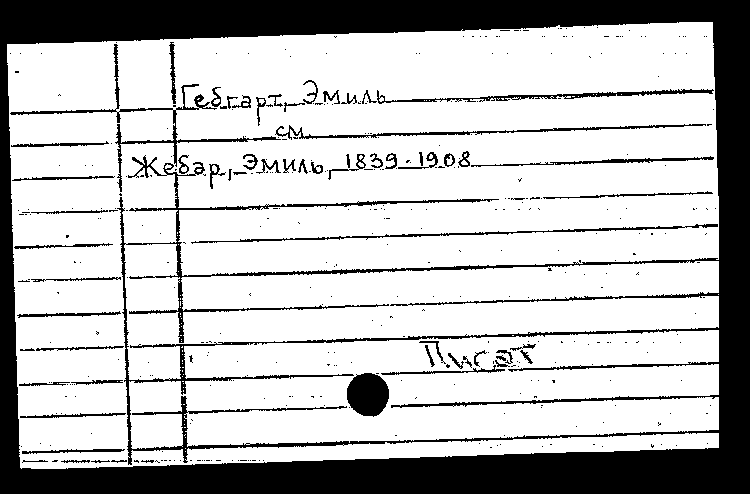 Гебгарт, Эмиль
см.
Жебар, Эмиль, 1839-1908
Писат